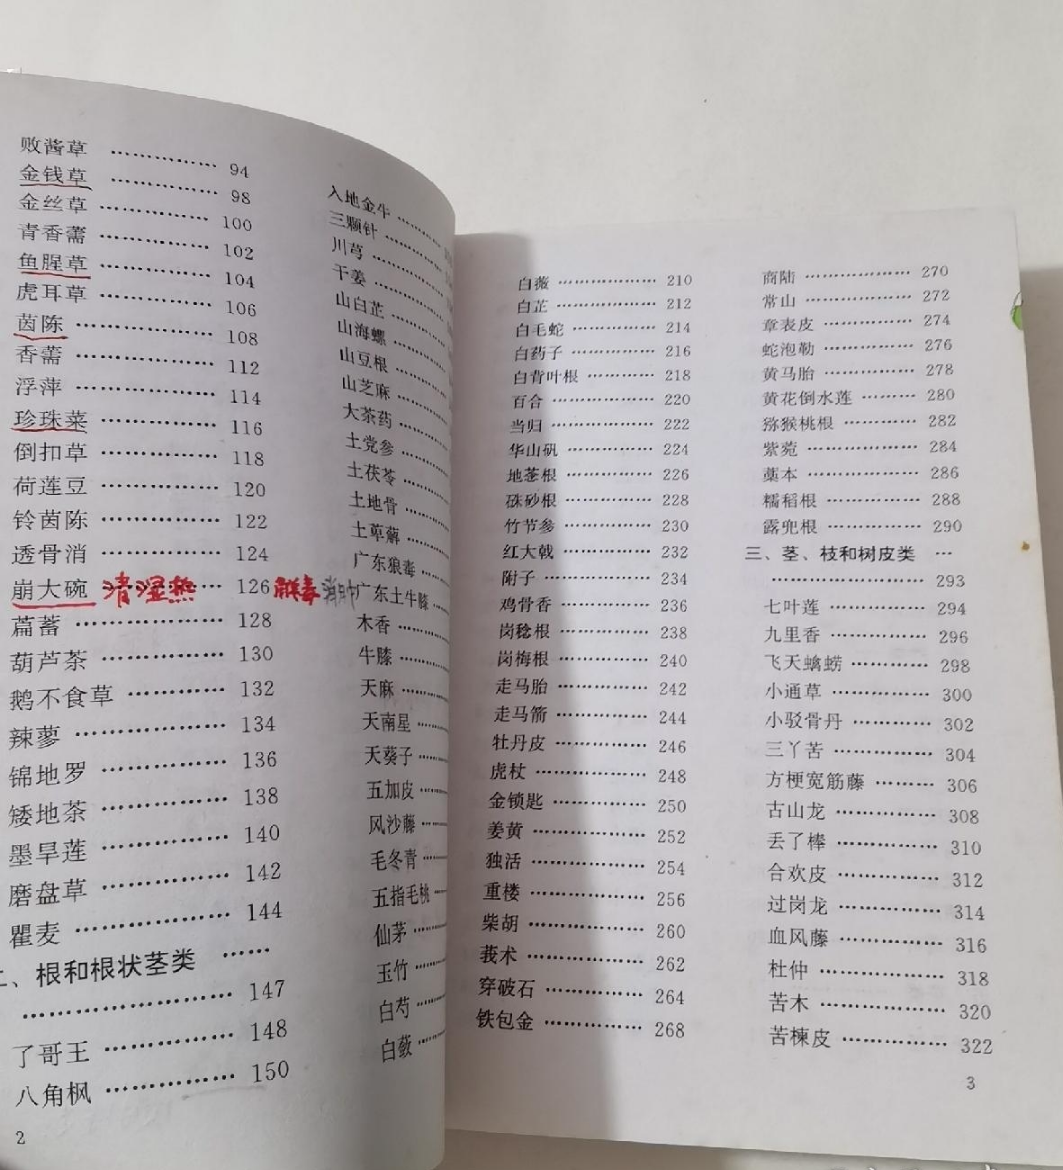 败酱草 …………… 94
金钱草 …………… 98
金丝草 …………… 100
青香薷 …………… 102
鱼腥草 …………… 104
虎耳草 …………… 106
茵陈 …………… 108
香薷 …………… 112
浮萍 …………… 114
珍珠菜 …………… 116
倒扣草 …………… 118
荷莲豆 …………… 120
铃茵陈 …………… 122
透骨消 …………… 124
崩大碗 清湿热 … 126 解毒 消肿
萹蓄 …………… 128
葫芦茶 …………… 130
鹅不食草 …………… 132
辣蓼 …………… 134
锦地罗 …………… 136
矮地茶 …………… 138
墨旱莲 …………… 140
磨盘草 …………… 142
瞿麦 …………… 144
二、根和根状茎类 ……
…………… 147
了哥王 …………… 148
八角枫 …………… 150
2
入地金牛 ……
三颗针 ……
川芎 ……
干姜 ……
山白芷 ……
山海螺 ……
山豆根 ……
山芝麻 ……
大茶药 ……
土党参 ……
土茯苓 ……
土地骨 ……
土萆薢 ……
广东狼毒 ……
广东土牛膝 ……
木香 ……
牛膝 ……
天麻 ……
天南星 ……
天葵子 ……
五加皮 ……
风沙藤 ……
毛冬青 ……
五指毛桃 ……
仙茅 ……
玉竹 ……
白芍 ……
白蔹 ……
白薇 …………… 210
白芷 …………… 212
白毛蛇 …………… 214
白药子 …………… 216
白背叶根 …………… 218
百合 …………… 220
当归 …………… 222
华山矾 …………… 224
地菍根 …………… 226
硃砂根 …………… 228
竹节参 …………… 230
红大戟 …………… 232
附子 …………… 234
鸡骨香 …………… 236
岗稔根 …………… 238
岗梅根 …………… 240
走马胎 …………… 242
走马箭 …………… 244
牡丹皮 …………… 246
虎杖 …………… 248
金锁匙 …………… 250
姜黄 …………… 252
独活 …………… 254
重楼 …………… 256
柴胡 …………… 260
莪术 …………… 262
穿破石 …………… 264
铁包金 …………… 268
商陆 …………… 270
常山 …………… 272
章表皮 …………… 274
蛇泡勒 …………… 276
黄马胎 …………… 278
黄花倒水莲 ……… 280
猕猴桃根 …………… 282
紫菀 …………… 284
藁本 …………… 286
糯稻根 …………… 288
露兜根 …………… 290
三、茎、枝和树皮类 …
…………… 293
七叶莲 …………… 294
九里香 …………… 296
飞天蠄蟧 …………… 298
小通草 …………… 300
小驳骨丹 …………… 302
三丫苦 …………… 304
方梗宽筋藤 ……… 306
古山龙 …………… 308
丢了棒 …………… 310
合欢皮 …………… 312
过岗龙 …………… 314
血风藤 …………… 316
杜仲 …………… 318
苦木 …………… 320
苦楝皮 …………… 322
3